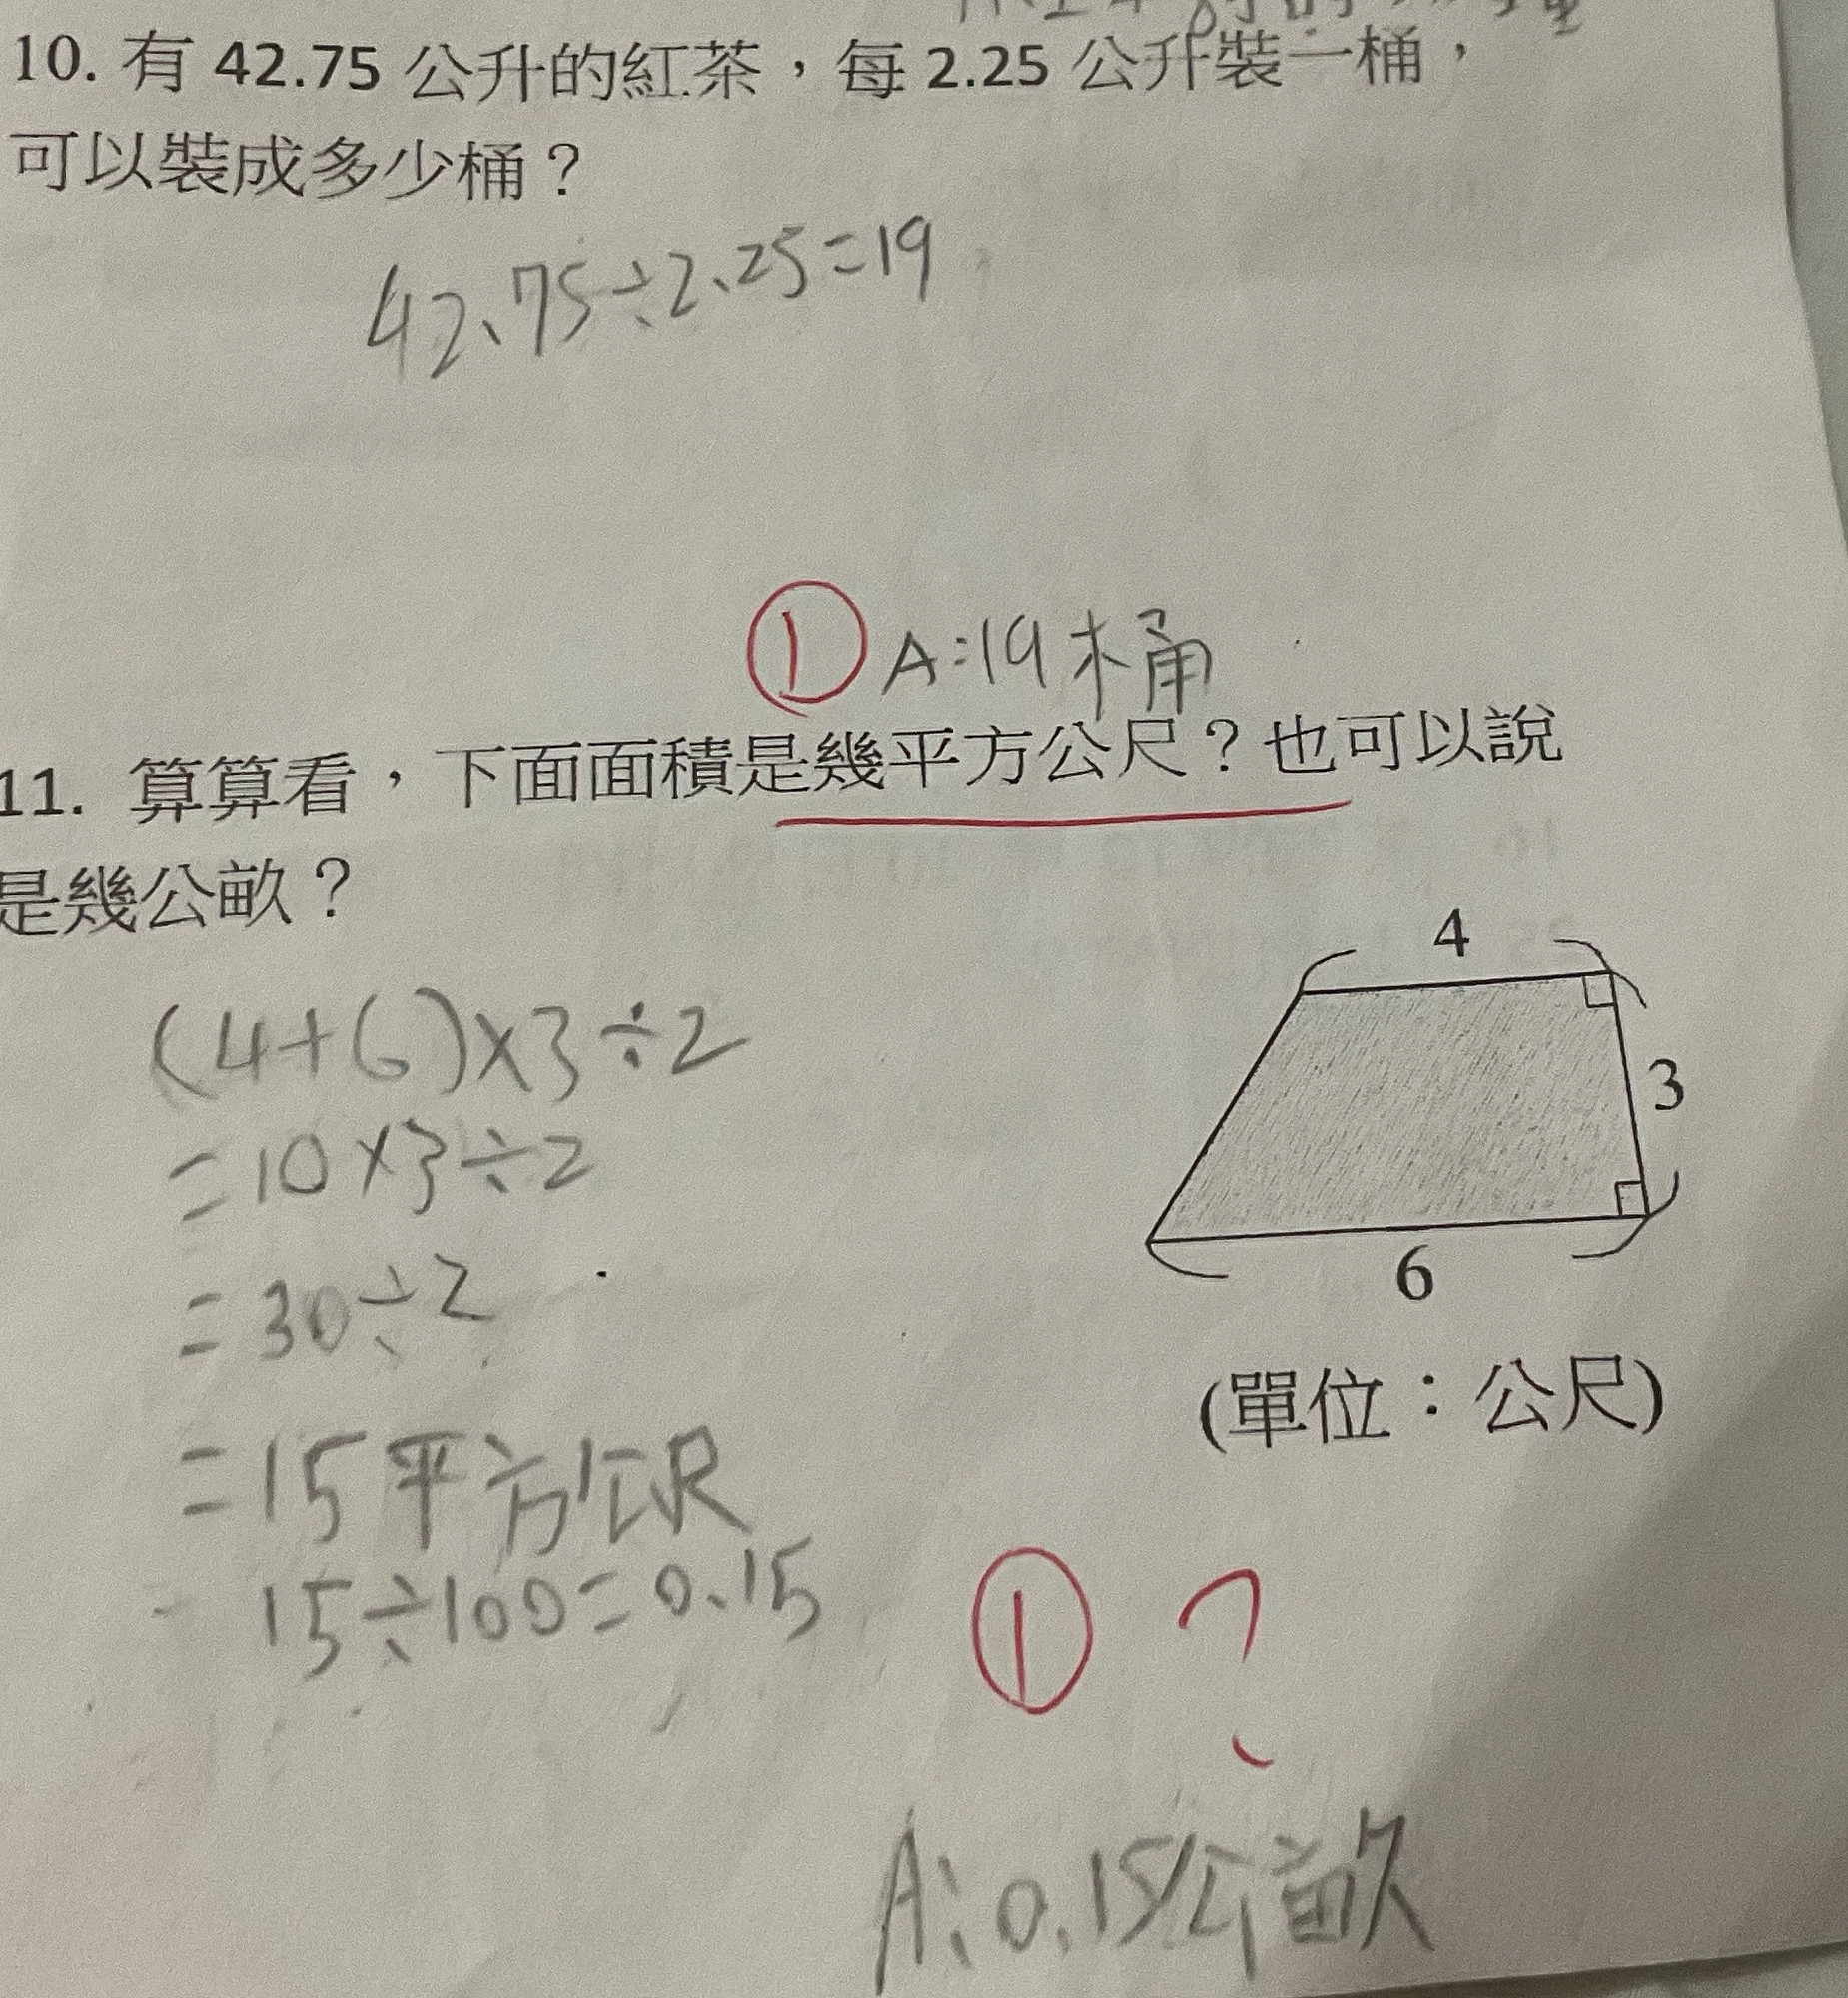 10. 有 42.75 公升的紅茶，每 2.25 公升裝一桶，
可以裝成多少桶？
42.75÷2.25=19
① A:19桶
11. 算算看，下面面積是幾平方公尺？也可以說
是幾公畝？
4
(4+6)×3÷2
3
=10×3÷2
6
=30÷2
(單位：公尺)
=15平方公尺
15÷100=0.15
① ?
A:0.15公畝